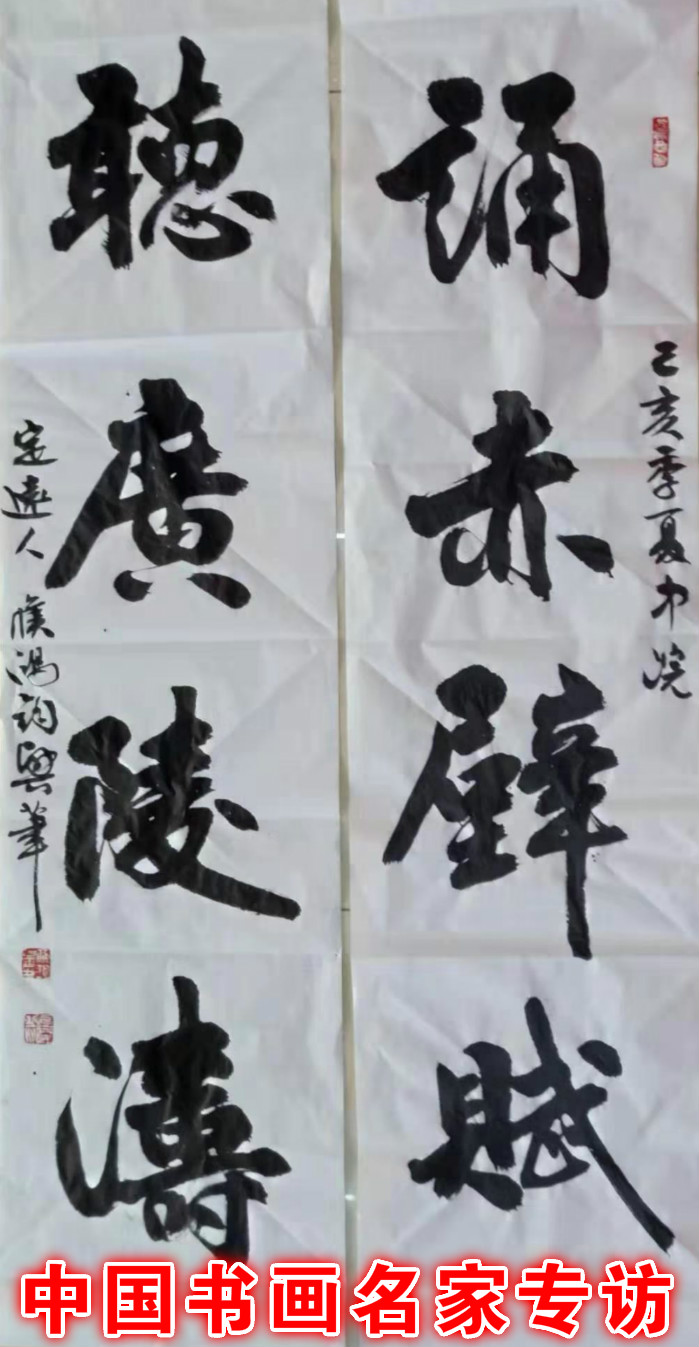 己亥季夏中浣
誦赤壁賦
聽廣陵濤
定遠人
中国书画名家专访